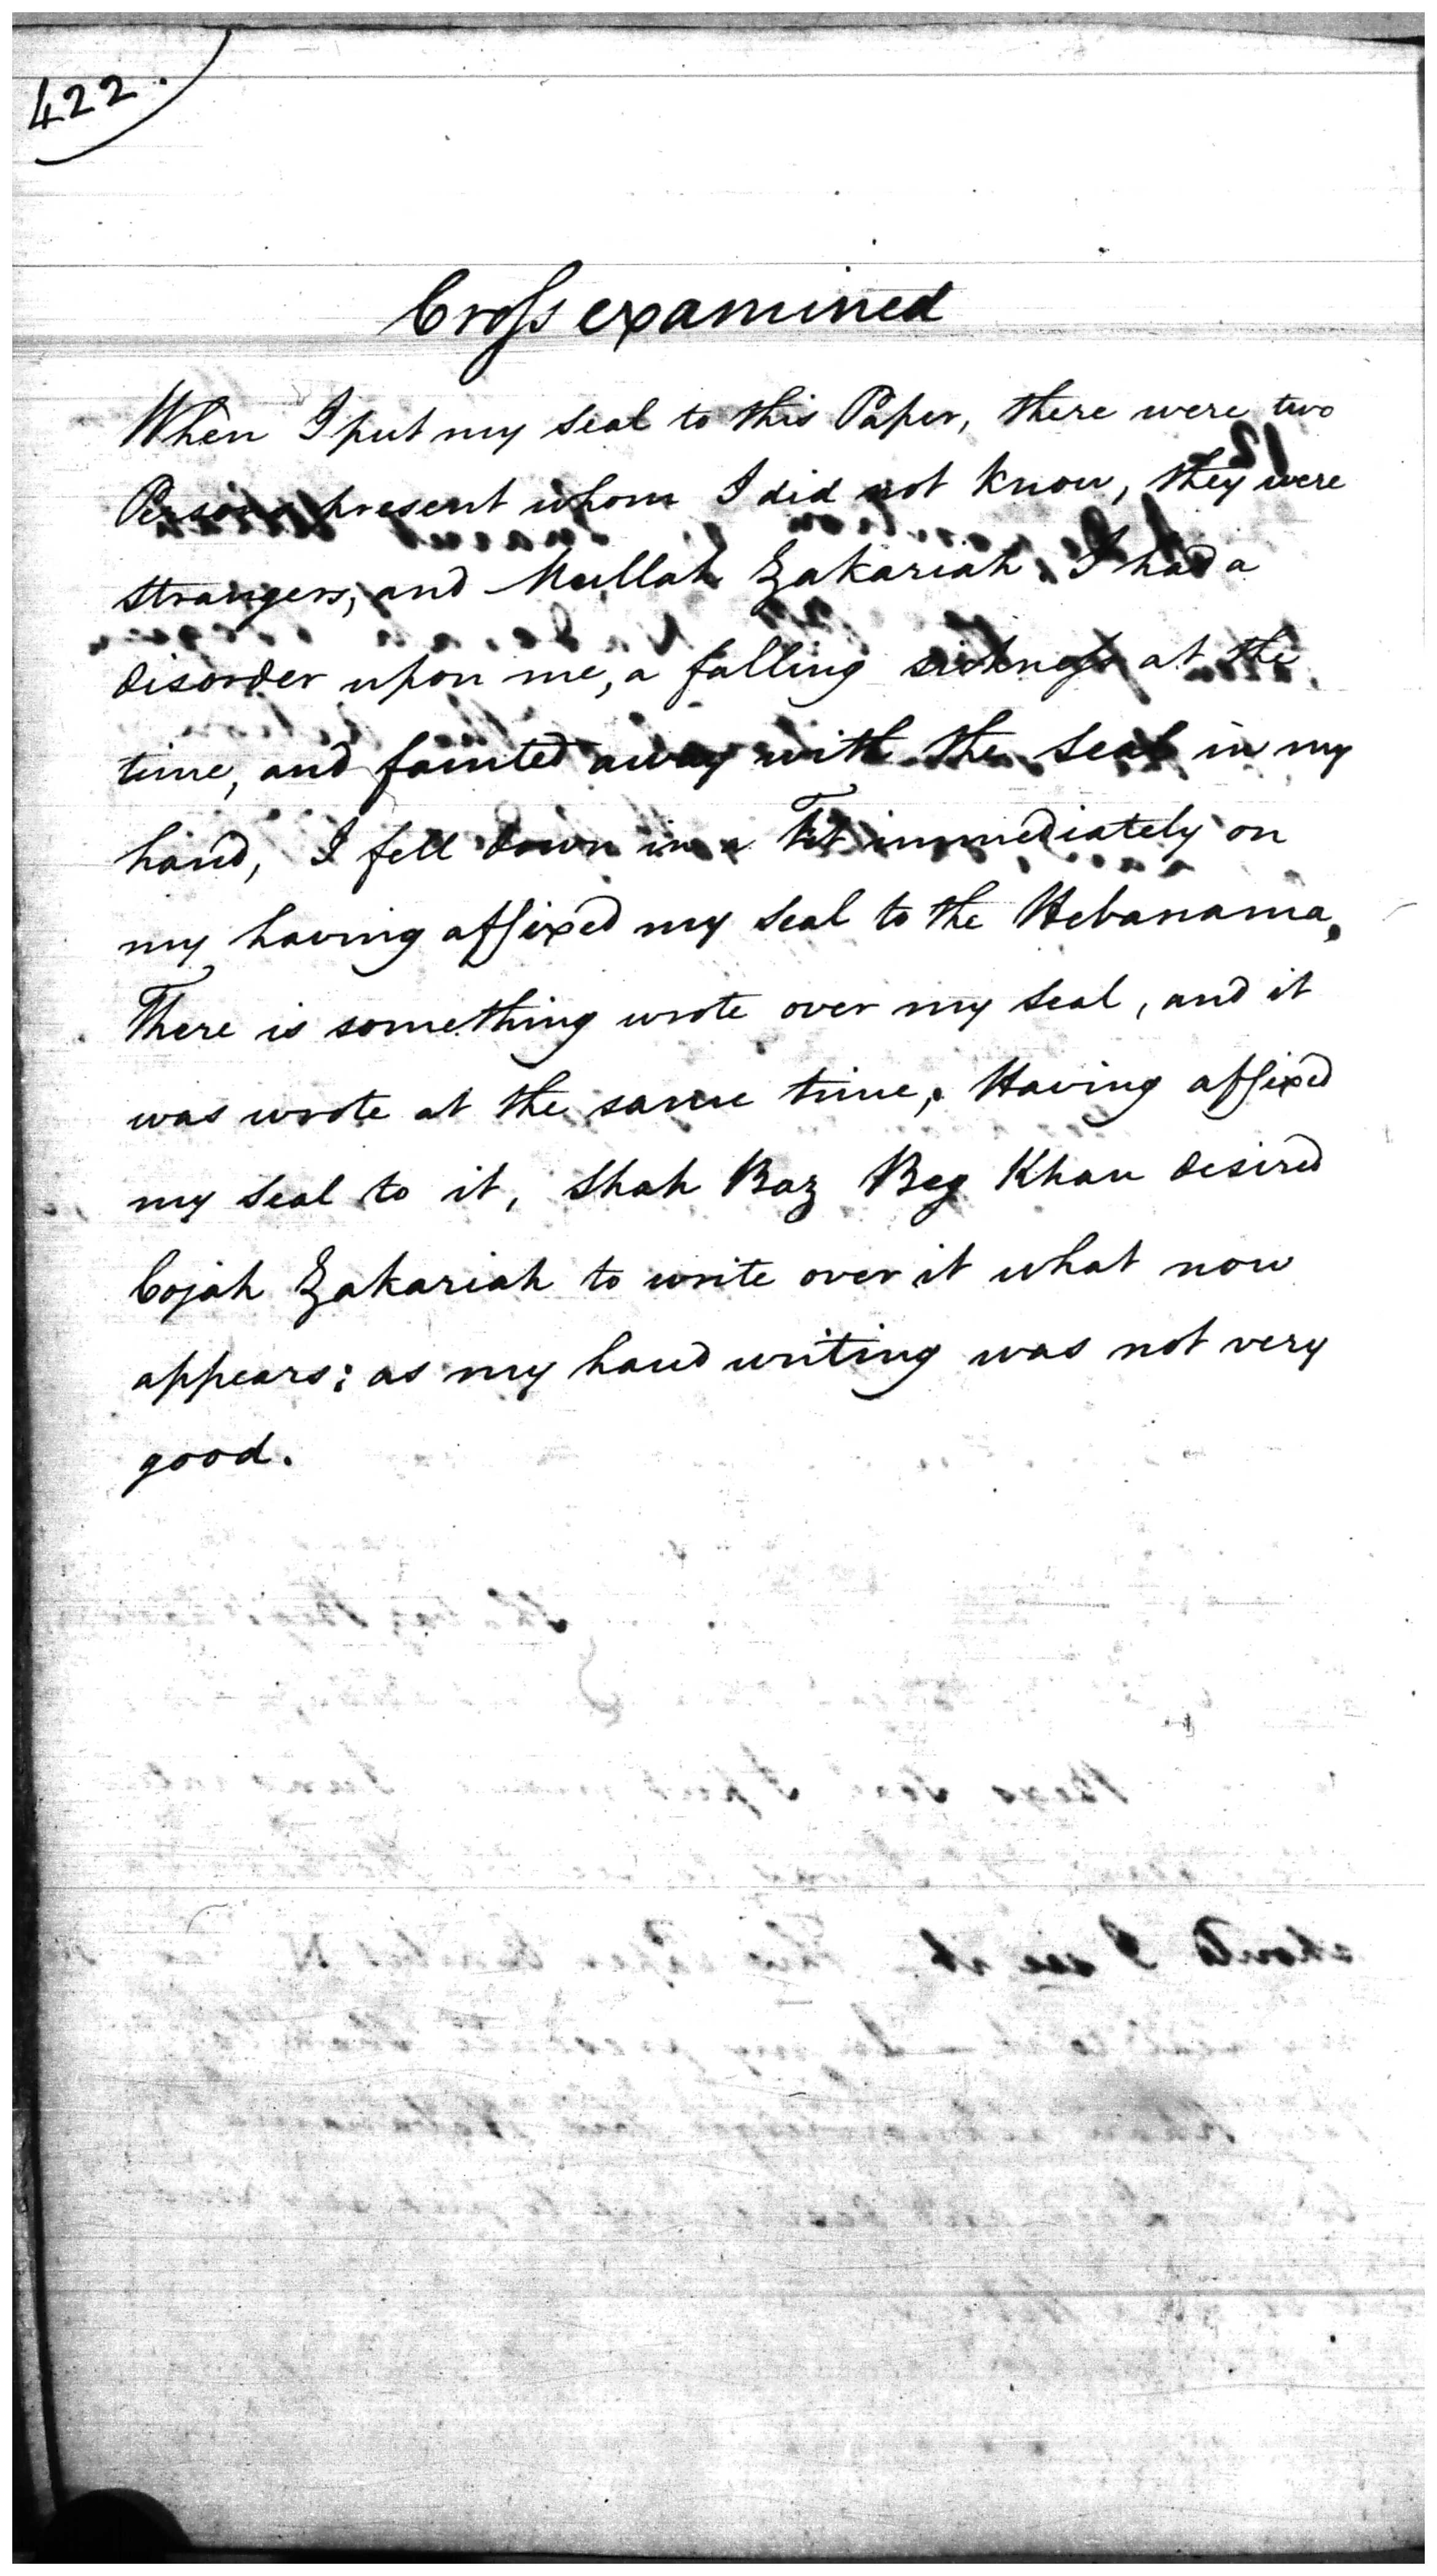 422.
Cross examined
When I put my seal to this Paper, there were two
Persons present whom I did not know, they were
strangers, and Mullah Zakariah, I had a
disorder upon me, a falling sickness at the
time, and fainted away with the seal in my
hand, I fell down in a Fit immediately on
my having affixed my seal to the Hebanama,
There is something wrote over my seal, and it
was wrote at the same time, Having affixed
my seal to it, Shah Baz Beg Khan desired
Cojah Zakariah to write over it what now
appears: as my hand writing was not very
good.